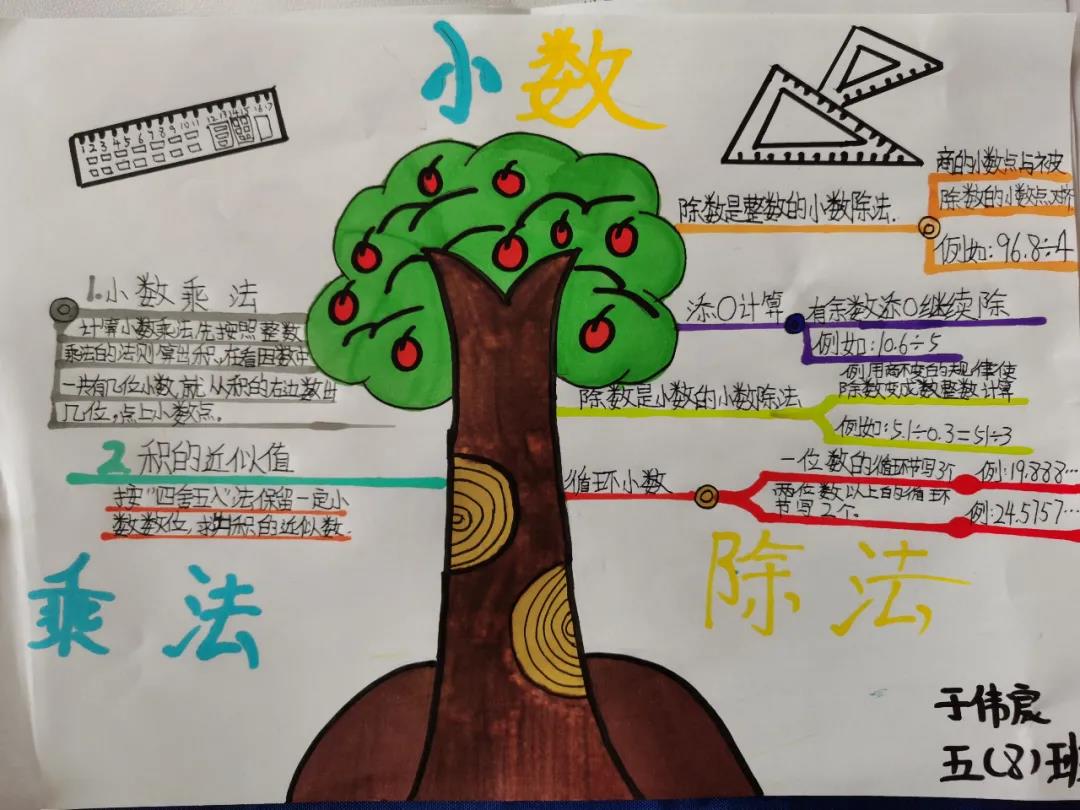 小数
1 2 3 4 5 6 7 8 9 10 11 12 13 14 15 16 17
1.小数乘法
计算小数乘法先按照整数
乘法的法则算出积,在看因数中
一共有几位小数,就从积的右边数出
几位,点上小数点。
2 积的近似值
按“四舍五入”法保留一定小
数数位,求出积的近似数.
乘法
除数是整数的小数除法.
商的小数点与被
除数的小数点对齐
例如:96.8÷4
添0计算
有余数添0继续除
例如:10.6÷5
除数是小数的小数除法
例用商不变白的规律使
除数变成数整数计算
例如:5.1÷0.3=51÷3
循环小数
一位数的循环节写3个
例:19.888…
两位数以上的循环
节写2个。
例:24.5757…
除法
于伟宸
五(8)班